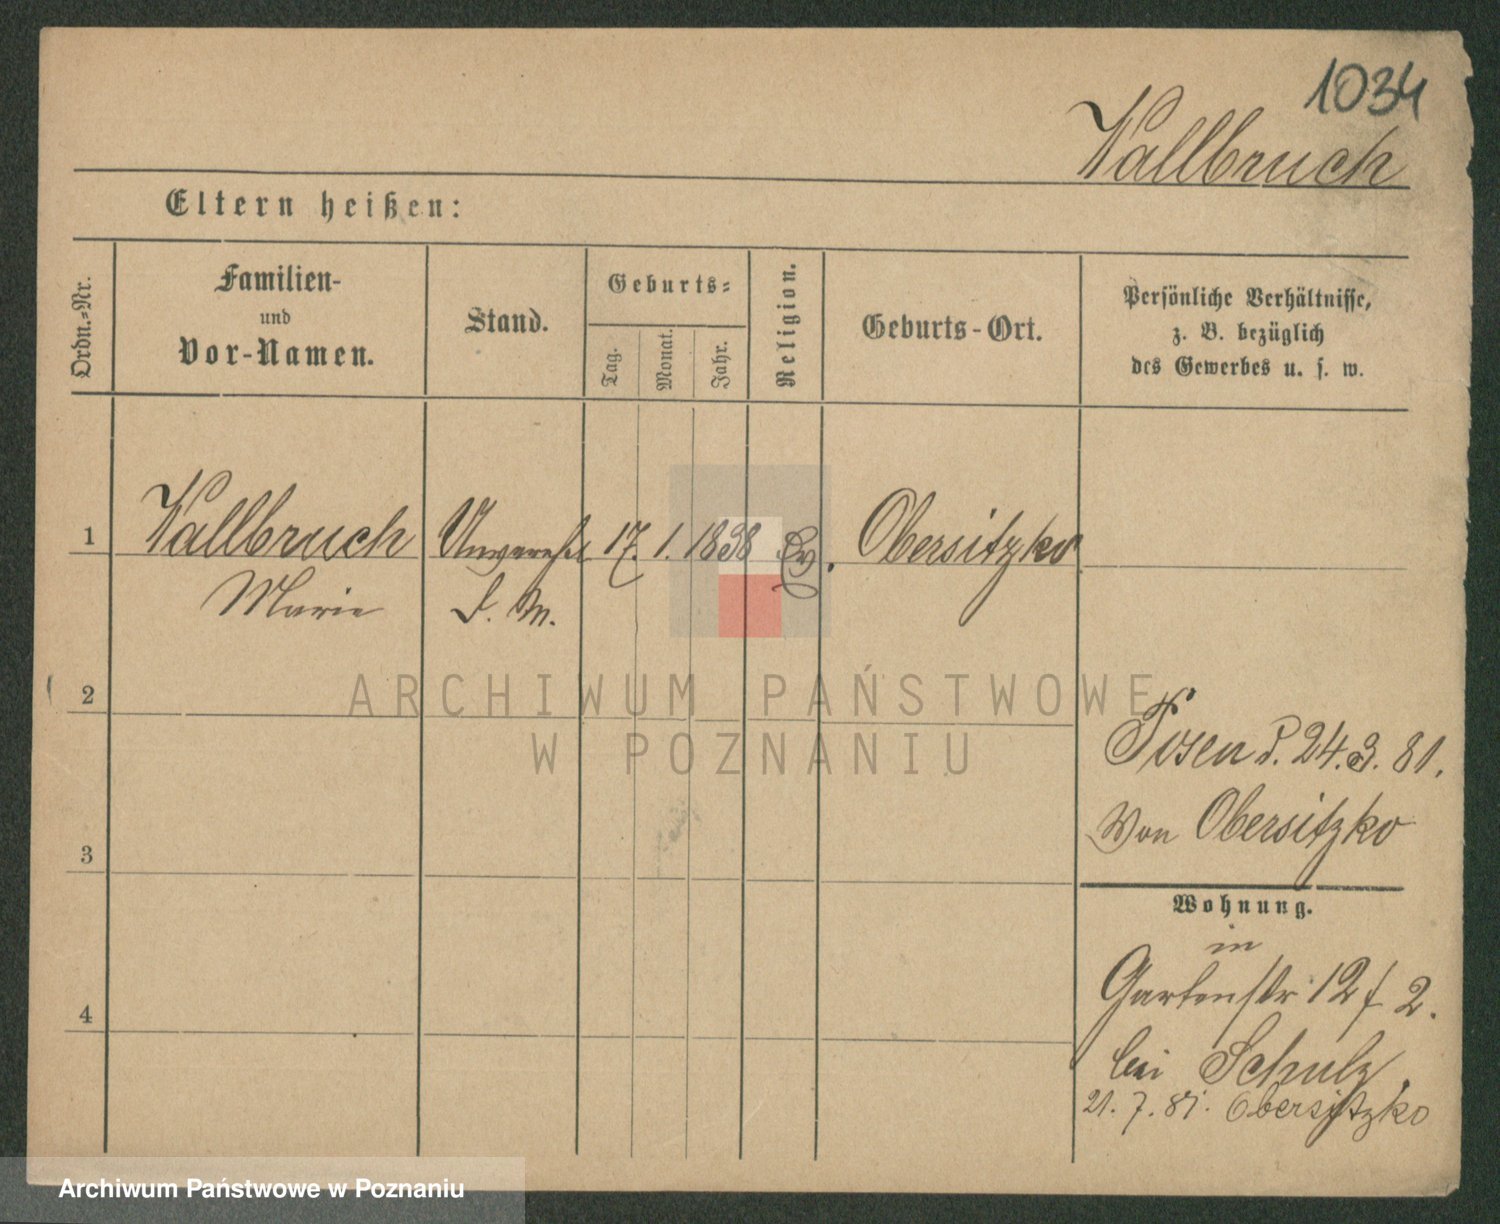 1034
Wallbruch
Eltern heißen:
Ordn.-Nr.
Familien-
und
Vor-Namen.
Stand.
Geburts-
Tag.
Monat.
Jahr.
Religion.
Geburts-Ort.
Persönliche Verhältnisse,
z. B. bezüglich
des Gewerbes u. s. w.
1 Wallbruch 17. 1. 1838 Ev. Obersitzko
Marie
2
Posen d. 24. 3. 81.
Von Obersitzko
3
Wohnung.
in
Gartenstr 12 f 2.
4
bei Schulz.
21. 7. 81. Obersitzko
ARCHIWUM PAŃSTWOWE
W POZNANIU
Archiwum Państwowe w Poznaniu